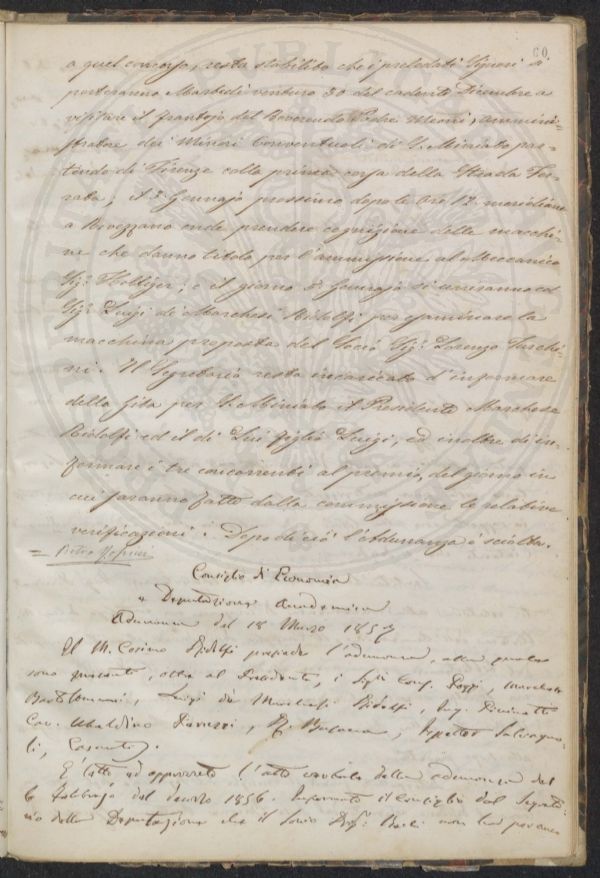 60
a quel concorso, resta stabilito che i prelodati Signori si
porteranno Martedì venturo 30 del cadente Dicembre a
visitare il frantojo del Reverendo Padre Meoni Ammini=
stratore dei Minori Conventuali di S. Miniato par=
tendo di Firenze colla prima corsa della Strada Fer=
rata; il 2 Gennajo prossimo dopo le ore 12 meridiane
a Rovezzano onde prendere cognizione delle macchi=
ne che danno titolo per l'ammissione al Meccanico
Sig.r; e il giorno di Gennajo si uniranno col
Sig.r Luigi de Marchesi Ridolfi per esaminare la
macchina proposta del Socio Sig.r Lorenzo
Il Segretario resta incaricato d'informare
della gita per S. Miniato il Presidente Marchese
Ridolfi ed il di Lui figlio Luigi, ed inoltre di in=
formare i tre concorrenti al premio, del giorno in
cui saranno fatte dalla commissione le relative
verificazioni. Dopo di ciò l'Adunanza è sciolta.
= Pietro
Consiglio di Economia
e Deputazione Accademica
Adunanza del 18 Marzo 1857
Il M. Cosimo Ridolfi presiede l'adunanza, alla quale
sono presenti, oltre al Presidente, i Sigri Conf. Pozzi, Marchese
Bartolommei, Luigi de Marchesi Ridolfi, Ing.
Cav. Ubaldino Peruzzi, Ispettor Salvagno=
li,
È letto ed approvato l'atto verbale della adunanza del
6 Febbrajo del decorso 1856. Informato il Consiglio dal Segreta=
rio della Deputazione che il Socio Prof. non ha per anco